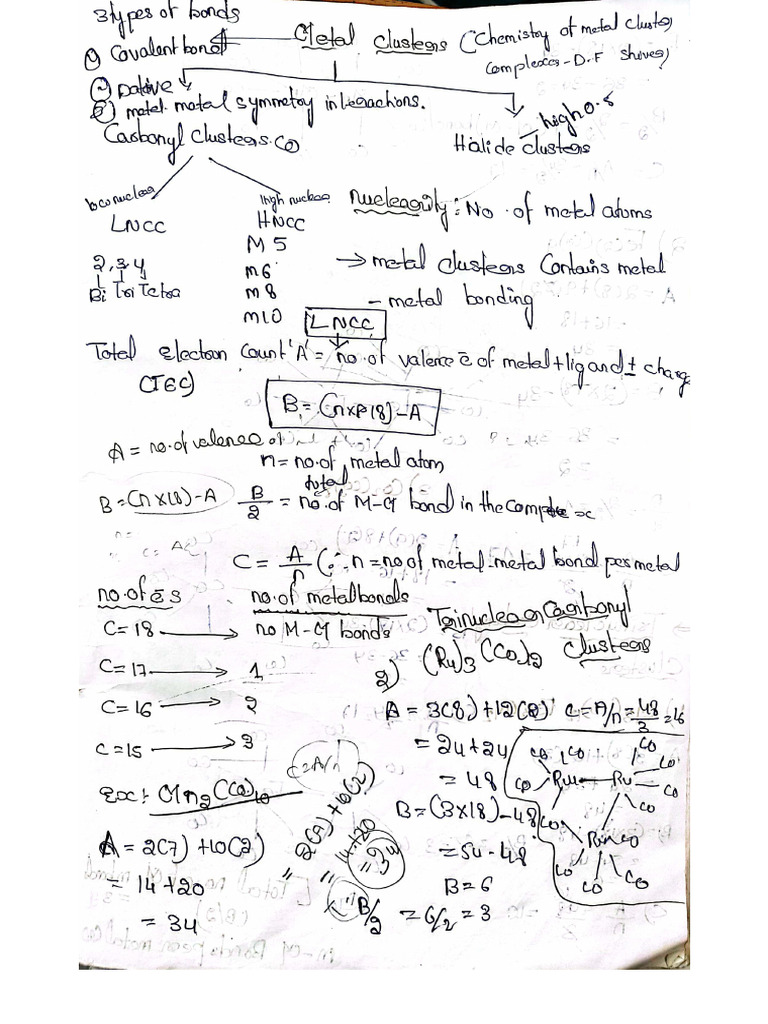 3 types of bonds
① Covalent bond ← Metal Clusters (Chemistry of metal cluster
complexes - D.F Shriver)
② Dative
③ metal-metal symmetry interactions.
Carbonyl Clusters. CO
high O.S
Halide clusters
low nuclear
LNCC
2, 3, 4
Bi Tri Tetra
High nuclear
HNCC
M 5
M 6
M 8
M 10
nuclearity: No. of metal atoms
→ metal clusters Contains metal
- metal bonding
LNCC
Total electron Count 'A' = no. of valence e̅ of metal + ligand ± charge
(TEC)
B = (n×18) - A
A = no. of valence
n = no. of metal atom
B = (n×18) - A
B/2 = total no. of M-M bond in the complex
C = A/n (∴ n = no of metal-metal bond per metal
no. of e̅s no. of metal bonds
C = 18 → no M-M bonds
C = 17 → 1
C = 16 → 2
C = 15 → 3
Trinuclear Carbonyl
Clusters
2) (Ru)3 (CO)12
A = 3(8) + 12(2)
= 24 + 24
= 48
C = A/n = 48/3 = 16
B = (3×18) - 48
= 54 - 48
B = 6
B/2 = 6/2 = 3
CO CO CO CO
CO Ru — Ru CO
CO CO
CO Ru CO
CO CO CO
Ex:- Mn2(CO)10
A = 2(7) + 10(2)
= 14 + 20
= 34
C = A/n
= 2(7) + 10(2)
= 14 + 20
= 34